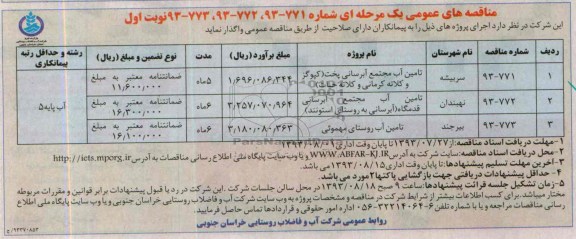 مناقصه های عمومی یک مرحله ای شماره ۷۷۱-۹۳، ۷۷۲-۹۳، ۷۷۳-۹۳ نوبت اول
این شرکت در نظر دارد اجرای پروژه های ذیل را به پیمانکاران دارای صلاحیت از طریق مناقصه عمومی واگذار نماید
ردیف شماره مناقصه نام شهرستان نام پروژه مبلغ برآورد (ریال) مدت نوع تضمین و مبلغ (ریال) رشته و حداقل رتبه پیمانکاری
۱ ۹۳-۷۷۱ سربیشه تامین آب مجتمع آبرسانی پخت (کبوگز و کلاته کرمانی و کلاته ۱,۶۹۶,۰۸۶,۳۴۴ ۵ماه ضمانتنامه معتبر به مبلغ ۱۱,۶۰۰,۰۰۰ آب پایه۵
۲ ۹۳-۷۷۲ نهبندان تامین آب مجتمع آبرسانی قدمگاه (آبرسانی به روستای استوند) ۳,۲۵۷,۰۷۰,۹۶۴ ۶ماه ضمانتنامه معتبر به مبلغ ۱۶,۳۰۰,۰۰۰
۳ ۹۳-۷۷۳ بیرجند تامین آب روستای مهموئی ۳,۱۸۰,۰۸۰,۳۶۳ ۶ماه ضمانتنامه معتبر به مبلغ ۱۶,۱۰۰,۰۰۰
۱-مهلت دریافت اسناد مناقصه: از ۱۳۹۳/۰۷/۲۷ تا پایان وقت اداری ۱۳۹۳/۰۸/۰۱
۲-محل دریافت اسناد مناقصه: سایت شرکت به آدرس WWW.ABFAR-KJ.IR و یا وب سایت پایگاه ملی اطلاع رسانی مناقصات به آدرس http://iets.mporg.ir
۳-آخرین مهلت تسلیم پیشنهادها: تا پایان وقت اداری ۱۳۹۳/۰۸/۱۵
۴-حداقل پیشنهادات دریافتی جهت بازگشایی پاکتها ۲ مورد می باشد.
۵-زمان تشکیل جلسه قرائت پیشنهادها: ساعت ۹ صبح ۱۳۹۳/۰۸/۱۸ در محل سالن جلسات شرکت. این شرکت در رد یا قبول پیشنهادات برابر قوانین و مقررات مربوطه
مختار میباشد. برای کسب اطلاعات بیشتر از شرایط شرکت در مناقصه و مشخصات پروژه به وب سایت شرکت آب و فاضلاب روستایی خراسان جنوبی و یا وب سایت پایگاه ملی اطلاع
رسانی مناقصات مراجعه و یا با شماره تلفن ۶-۳۲۲۱۴۰۶۴-۰۵۶ اداره امور حقوقی و قراردادها تماس حاصل فرمایید.
روابط عمومی شرکت آب و فاضلاب روستایی خراسان جنوبی